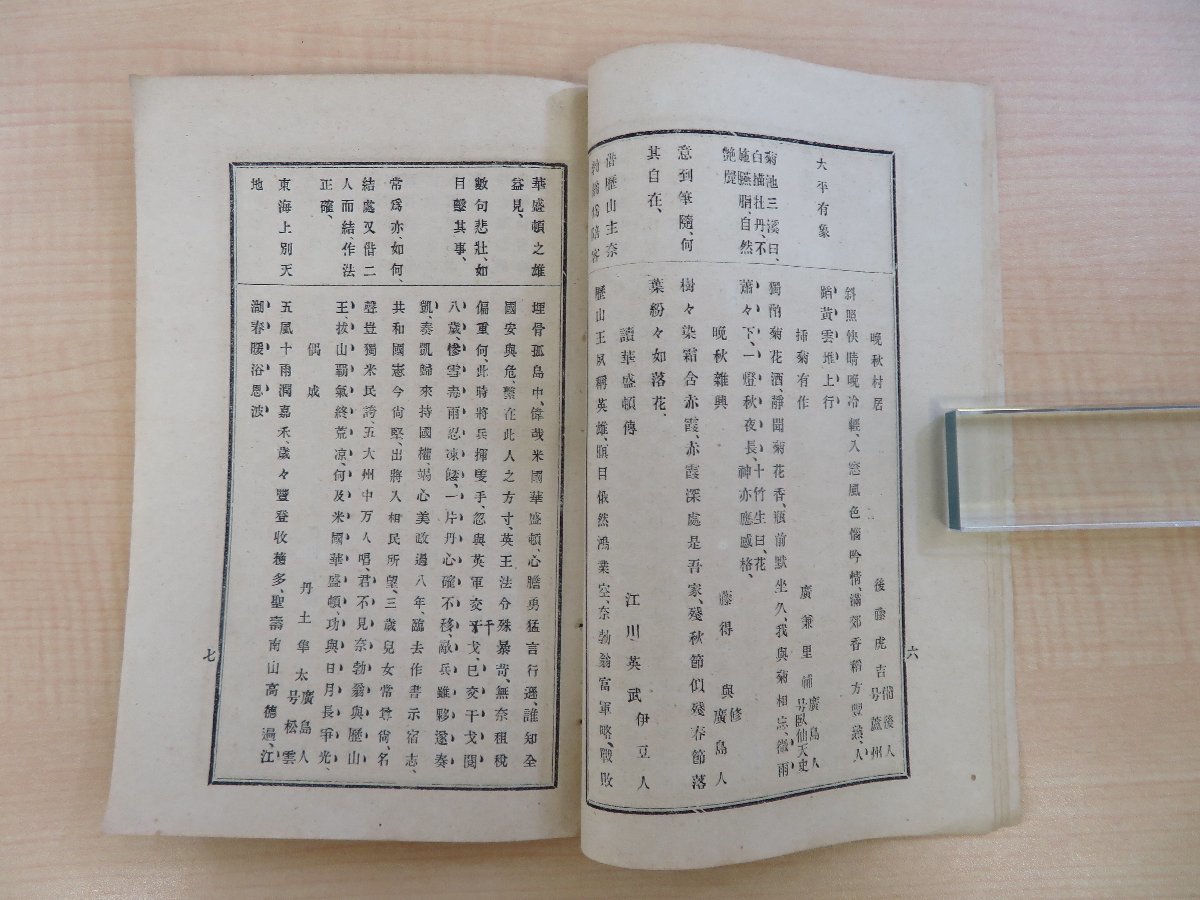 大平有象
菊池三溪曰、
白描牡丹、不
施臙脂、自然
艶麗
意到筆隨、何
其自在、
借歷山主奈
晩秋村居
後藤虎吉 備後人 号蘆州
斜照快晴晩冷輕、入窓風色惱吟情、滿郊香稻方豐熟、人
踏黃雲堆上行
插菊有作
廣兼里補 廣島人 号臥仙天史
獨酌菊花酒、靜聞菊花香、瓶前默坐久、我與菊相忘、微雨
蕭々下、一燈秋夜長、神亦應感格、十竹生曰、花
晩秋雜興
藤得與 修 廣島人
樹々染霜含赤霞、赤霞深處是吾家、殘秋節似殘春節落
葉紛々如落花、
讀華盛頓傳
江川英武 伊豆人
歷山王夙稱英雄、瞑目依然鴻業空、奈勃翁富軍略、戰敗
六
華盛頓之雄
益見、
數句悲壯、如
目擊其事、
常爲亦、如何、
結處又借二
人而結、作法
正確、
東海上別天
地
埋骨孤島中、偉哉米國華盛頓、心膽勇猛言行遜、誰知全
國安與危、繫在此人之方寸、英王法令殊暴苛、無奈租稅
偏重何、此時將兵揮隻手、忽與英軍交干戈、已交干戈閱
八歲、慘雪毒雨忍凍餒、一片丹心確不移、敵兵雖夥遂奏
凱、奏凱歸來持國權、竭心美政過八年、臨去作書示宿志、
共和國憲今尙堅、出將入相民所望、三歲兒女常尊尙、名
聲豈獨米民誇、五大州中万人唱、君不見奈勃翁與歷山
王、拔山覇氣終荒凉、何及米國華盛頓、功與日月長爭光、
偶成
丹土隼太 廣島人 号松雲
五風十雨潤嘉禾、歲々豐登收穫多、聖壽南山高德過、江
湖春暖浴恩波
七